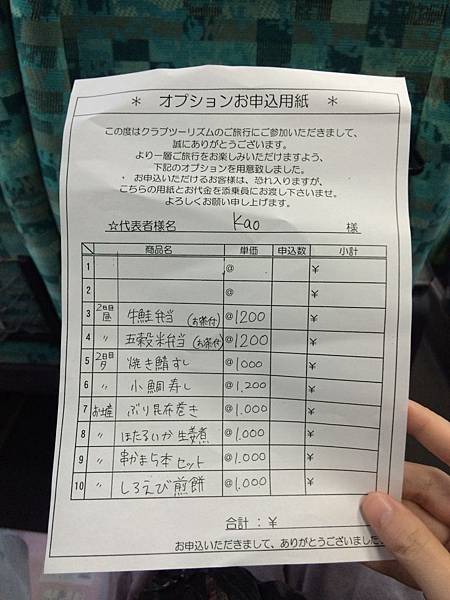 ＊ オプションお申込用紙 ＊
この度はクラブツーリズムのご旅行にご参加いただきまして、
誠にありがとうございます。
より一層ご旅行をお楽しみいただけますよう、
下記のオプションを用意致しました。
お申込いただけるお客様は、恐れ入りますが、
こちらの用紙とお代金を添乗員にお渡し下さいませ。
よろしくお願い申し上げます。
☆代表者様名 Kao 様
商品名 単価 申込数 小計
1 @ ¥
2 @ ¥
3 2日目昼 牛鮭弁当 (お茶付) @1200 ¥
4 〃 五穀米弁当 (お茶付) @1200 ¥
5 2日目夕 焼き鯖すし @1000 ¥
6 〃 小鯛寿し @1,200 ¥
7 お土産 ぶり昆布巻き @1,000 ¥
8 〃 ほたるいか生姜煮 @1,000 ¥
9 〃 串かま5本セット @1,000 ¥
10 〃 しろえび煎餅 @1,000 ¥
合計：¥
お申込いただきまして、ありがとうございました